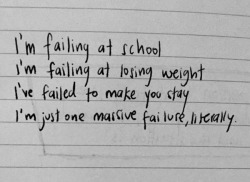 I'm failing at school
I'm failing at losing weight
I've failed to make you stay
I'm just one massive failure, literally.